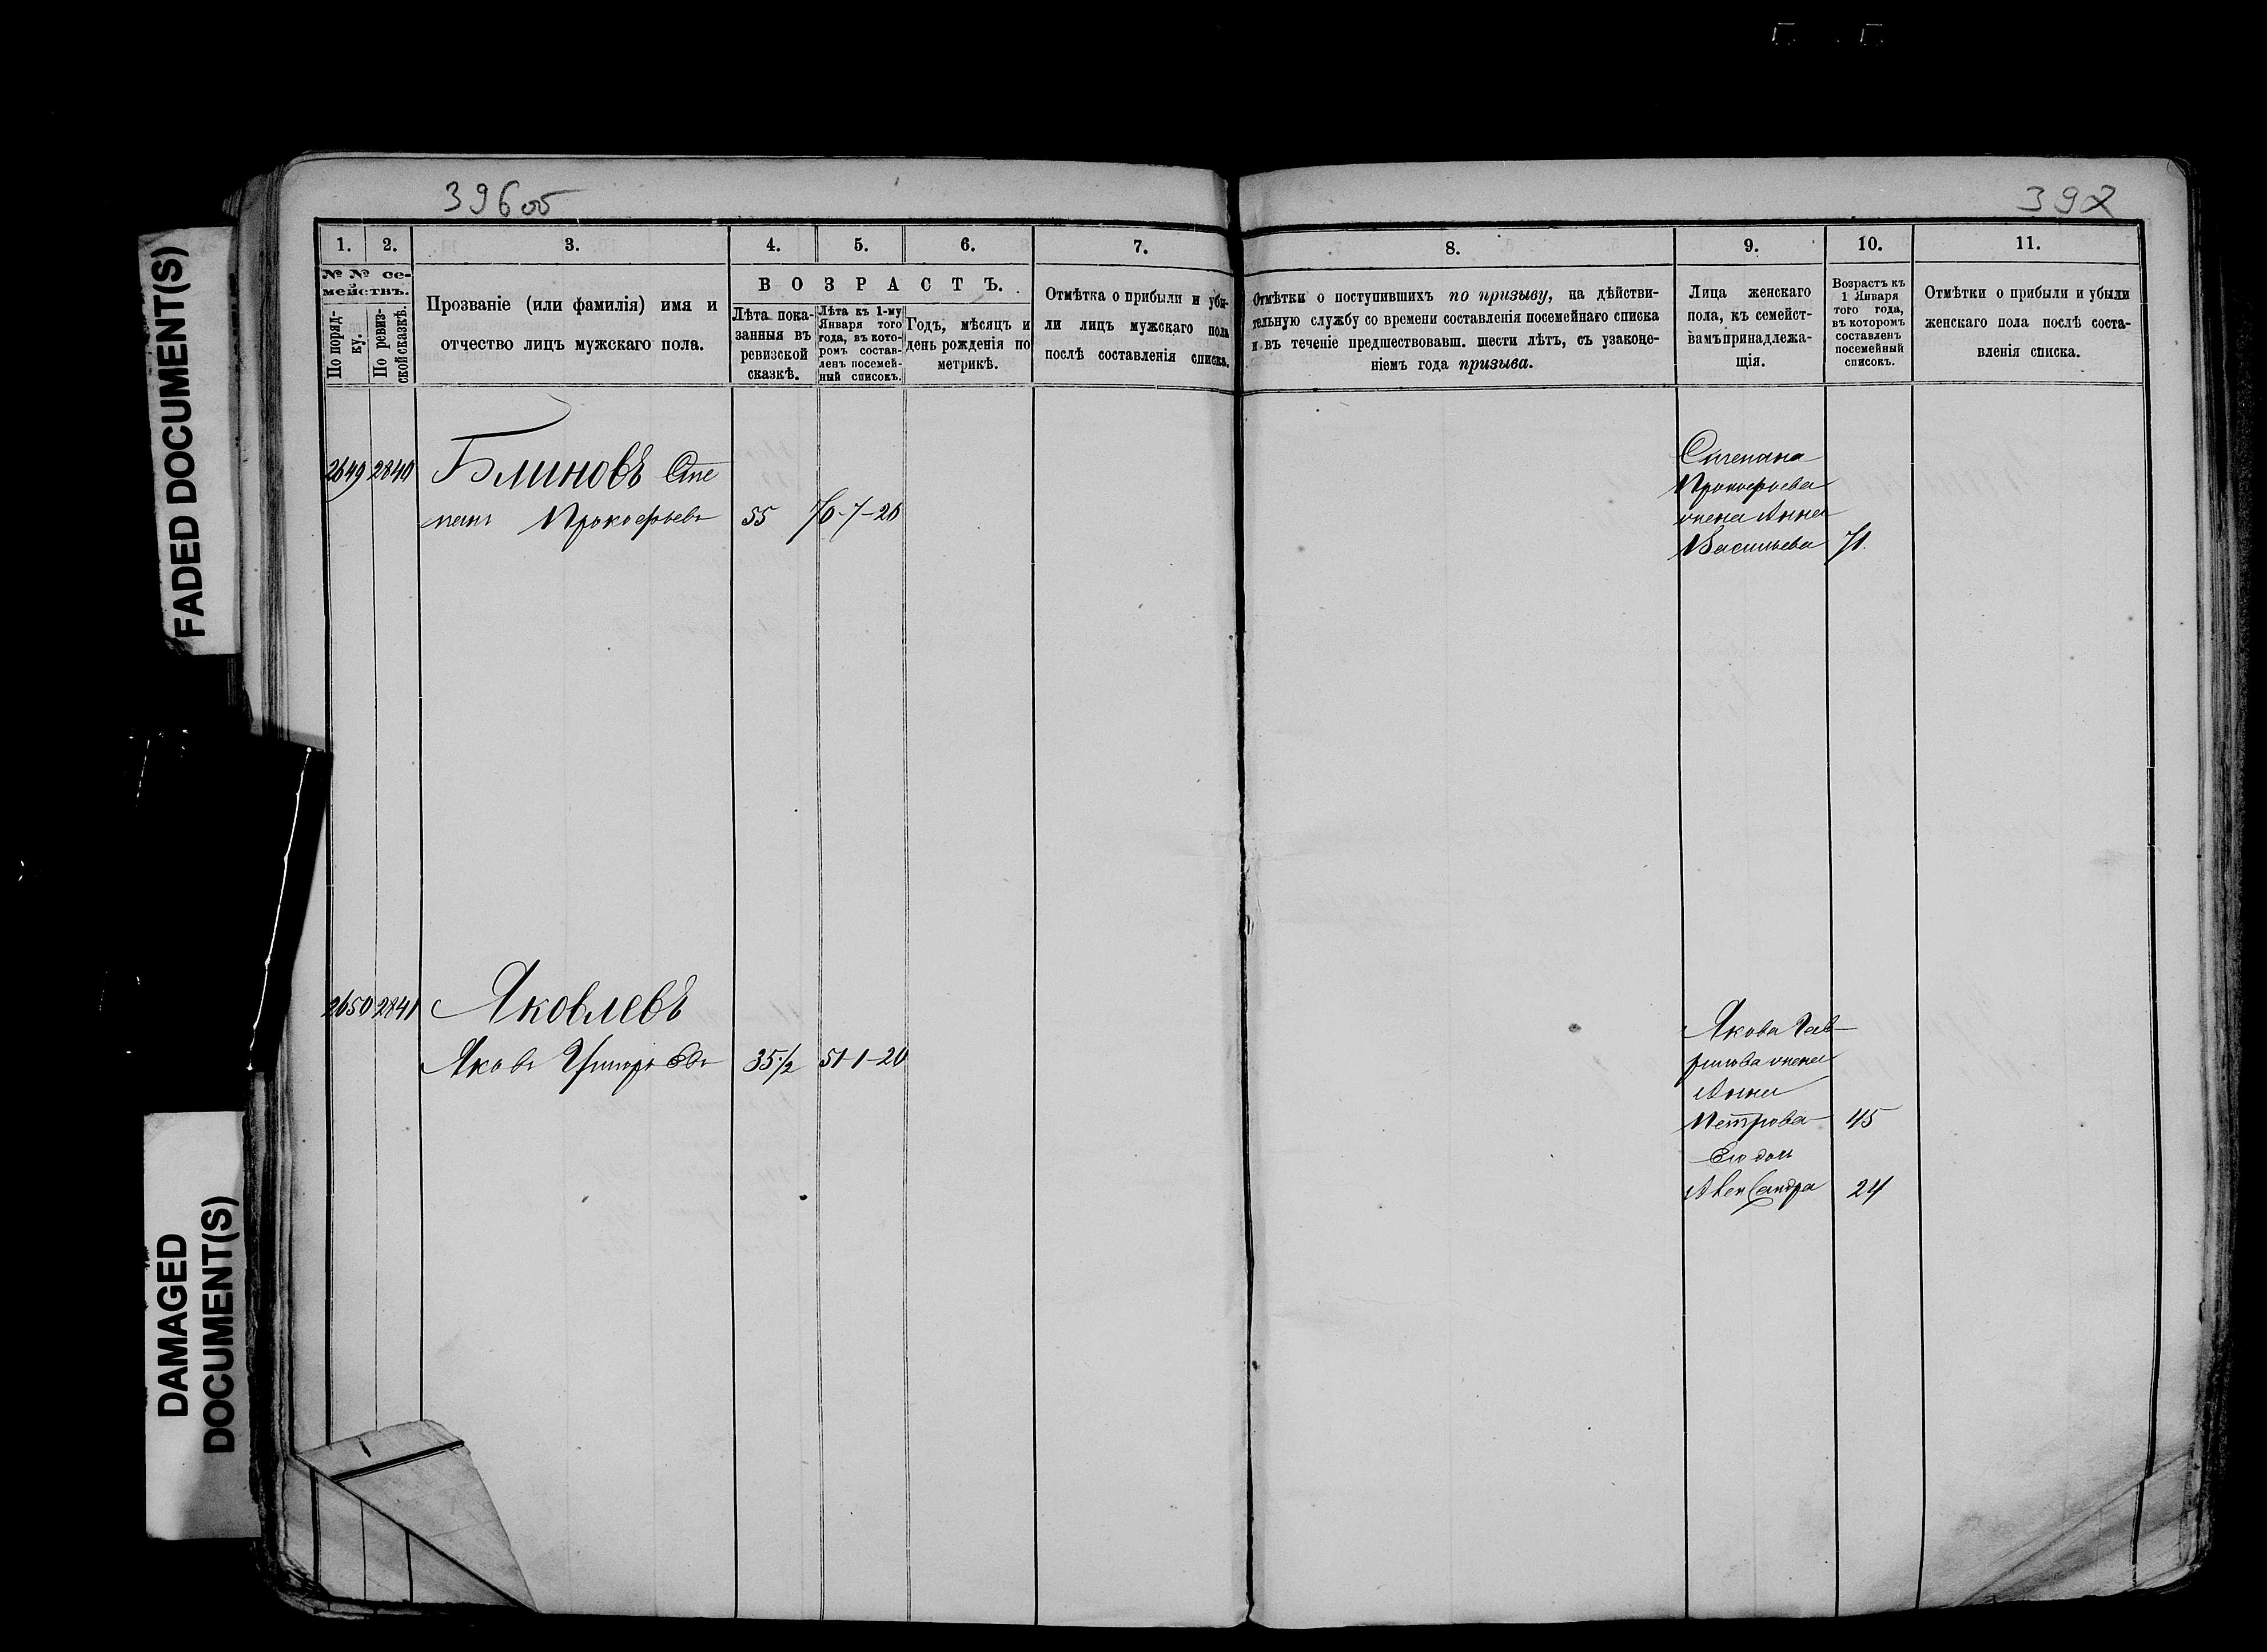 FADED DOCUMENT(S)
DAMAGED
DOCUMENT(S)
396 об
1. 2. 3. 4. 5. 6. 7.
№ № се-
мействъ.
По поряд-
ку.
По ревиз-
ской сказкѣ.
Прозваніе (или фамилія) имя и
отчество лицъ мужскаго пола.
ВОЗРАСТЪ.
Лѣта пока-
занныя въ
ревизской
сказкѣ.
Лѣта къ 1-му
Января того
года, въ кото-
ромъ состав-
ленъ посемей-
ный списокъ.
Годъ, мѣсяцъ и
день рожденія по
метрикѣ.
Отмѣтка о прибыли и убы-
ли лицъ мужскаго пола
послѣ составленія списка.
2649 2840 Блиновъ Сте
панъ Прокофьевъ 55 70-7-20
2650 2841 Яковлевъ
Яковъ 35½ 51-1-20
39
8. 9. 10. 11.
Отмѣтки о поступившихъ по призыву, на дѣйстви-
тельную службу со времени составленія посемейнаго списка
и въ теченіе предшествовавш. шести лѣтъ, съ узаконе-
ніемъ года призыва.
Лица женскаго
пола, къ семейст-
вамъ принадлежа-
щія.
Возрастъ къ
1 Января
того года,
въ которомъ
составленъ
посемейный
списокъ.
Отмѣтки о прибыли и убыли
женскаго пола послѣ соста-
вленія списка.
Степана
Прокофьева
жена Анна
Васильева 71.
Якова Гав
рилова жена
Анна
Петрова 45
Его дочь
Александра 24